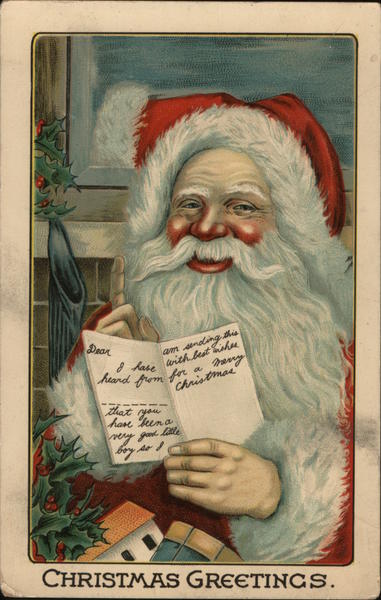 Dear
I have
heard from
that you
have been a
very good little
boy so I
am sending this
with best wishes
for a Merry
Christmas
CHRISTMAS GREETINGS.